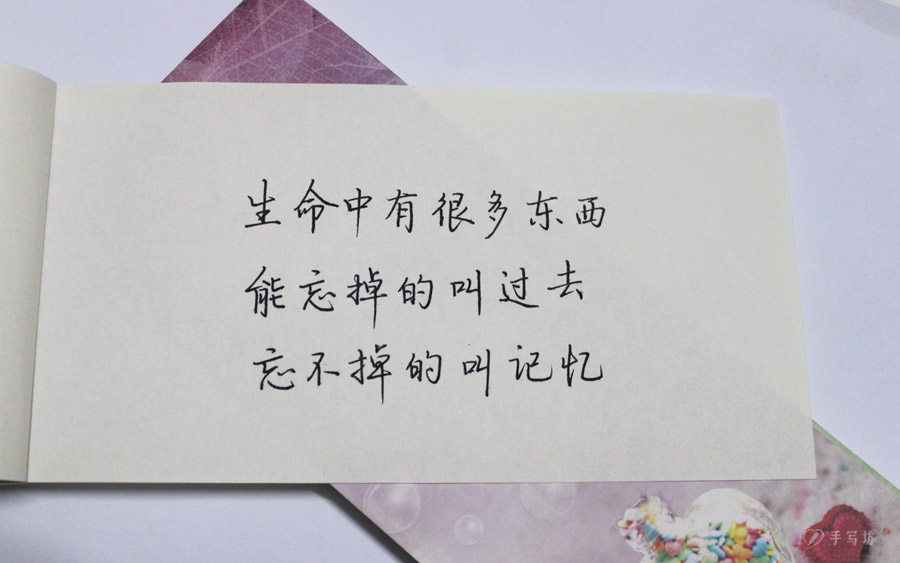 生命中有很多东西
能忘掉的叫过去
忘不掉的叫记忆
手写坊